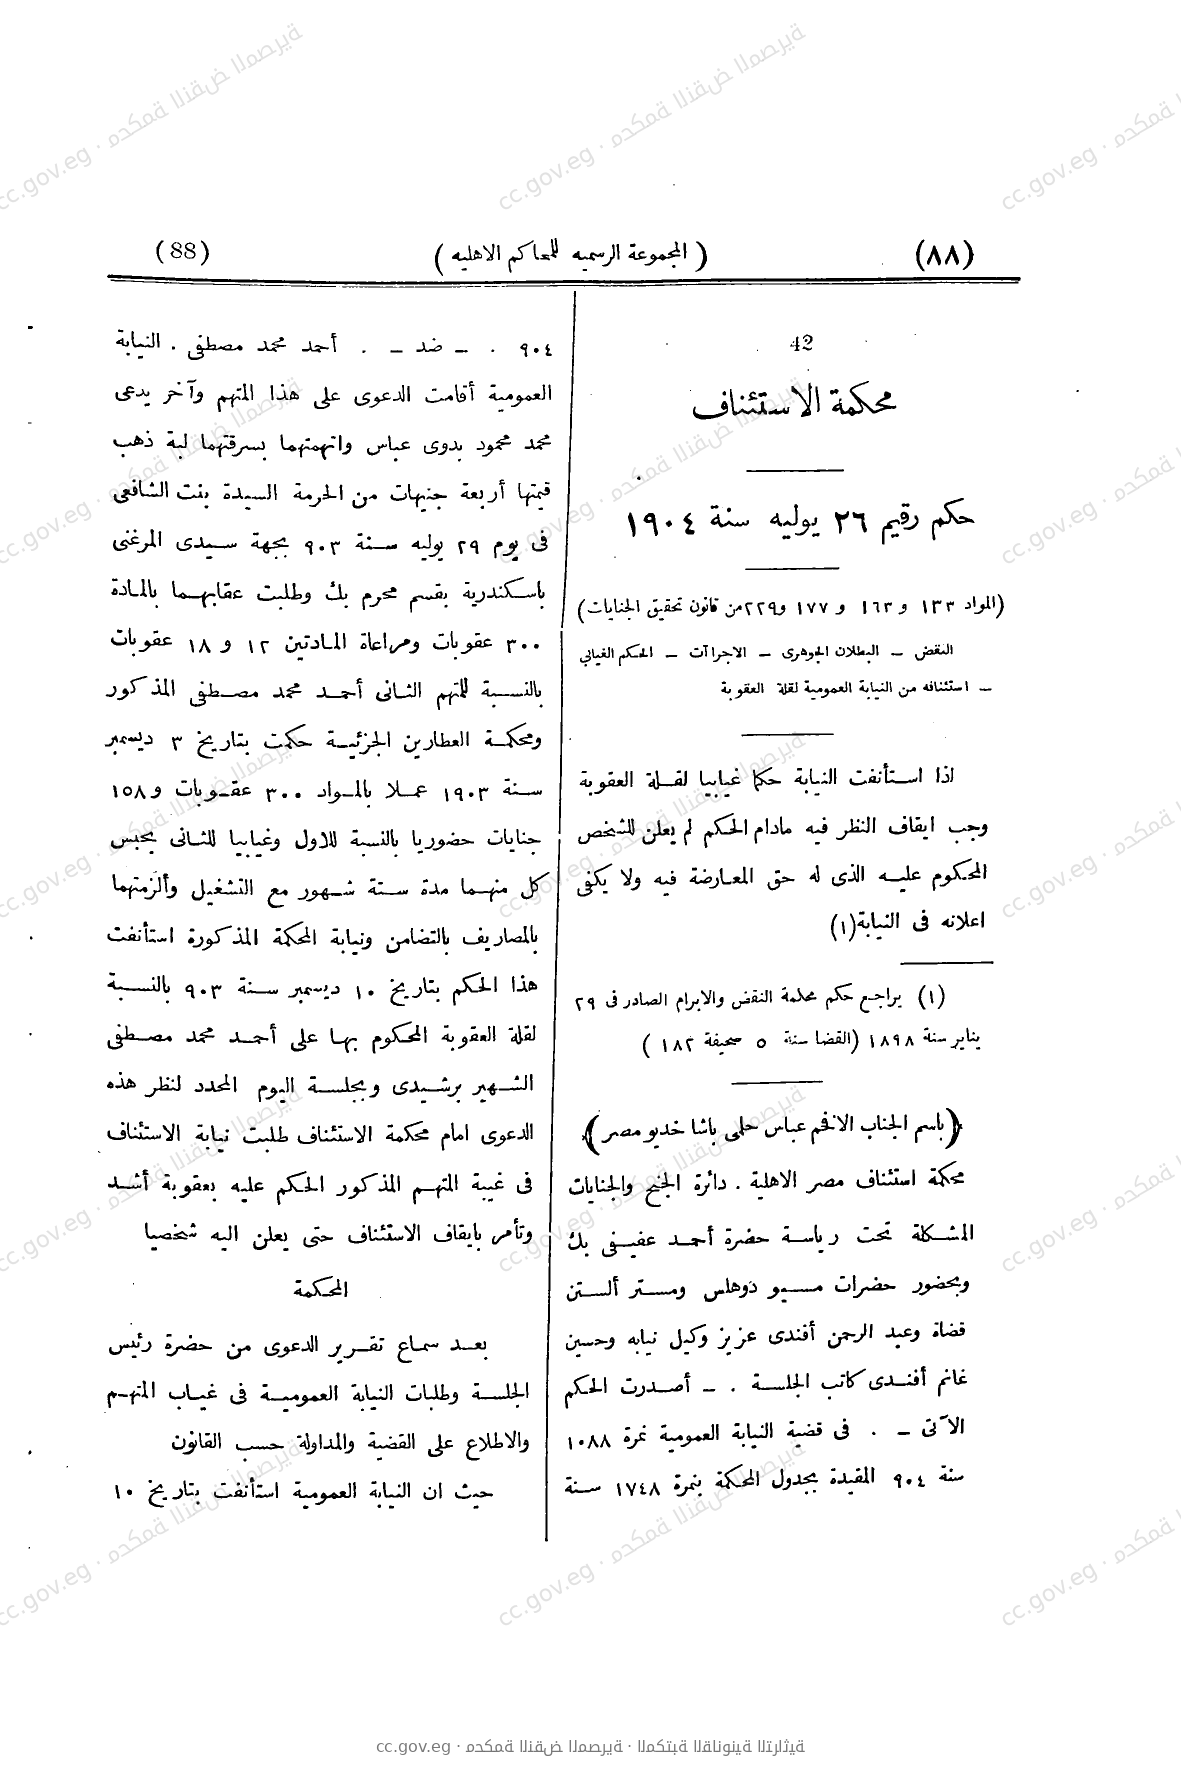 (٨٨) ( المجموعة الرسميه للمحاكم الاهليه ) (88)
42
محكمة الاستئناف
حكم رقيم ٢٦ يوليه سنة ١٩٠٤
(المواد ١٣٣ و ١٦٣ و ١٧٧ و٢٢٩ من قانون تحقيق الجنايات)
النقض – البطلان الجوهرى – الاجراآت – الحكم الغيابي
– استئنافه من النيابة العمومية لقلة العقوبة
اذا استأنفت النيابة حكما غيابيا لقلة العقوبة
وجب ايقاف النظر فيه مادام الحكم لم يعلن للشخص
المحكوم عليه الذى له حق المعارضة فيه ولا يكفى
اعلانه فى النيابة(١)
(١) يراجع حكم محكمة النقض والابرام الصادر فى ٢٩
يناير سنة ١٨٩٨ (القضا سنة ٥ صحيفة ١٨٢ )
(باسم الجناب الافخم عباس حلمى باشا خديو مصر)
محكمة استئناف مصر الاهلية . دائرة الجنح والجنايات
المشكلة تحت رياسة حضرة أحمد عفيفى بك
وبحضور حضرات مسيو دوهلس ومستر ألستن
قضاة وعبد الرحمن أفندى عزيز وكيل نيابه وحسين
غانم أفندى كاتب الجلسة . – أصدرت الحكم
الآتى – . فى قضية النيابة العمومية نمرة ١٠٨٨
سنة ٩٠٤ المقيدة بجدول المحكمة بنمرة ١٧٤٨ سنة
٩٠٤ . – ضد – . أحمد محمد مصطفى . النيابة
العمومية أقامت الدعوى على هذا المتهم وآخر يدعى
محمد محمود بدوى عباس واتهمتهما بسرقتهما لبة ذهب
قيمتها أربعة جنيهات من الحرمة السيدة بنت الشافعى
فى يوم ٢٩ يوليه سنة ٩٠٣ بجهة سيدى المرغنى
باسكندرية بقسم محرم بك وطلبت عقابهما بالمادة
٣٠٠ عقوبات ومراعاة المادتين ١٢ و ١٨ عقوبات
بالنسبة للمتهم الثانى أحمد محمد مصطفى المذكور
ومحكمة العطارين الجزئية حكمت بتاريخ ٣ ديسمبر
سنة ١٩٠٣ عملا بالمواد ٣٠٠ عقوبات و١٥٨
جنايات حضوريا بالنسبة للاول وغيابيا للثانى بحبس
كل منهما مدة ستة شهور مع التشغيل وألزمتهما
بالمصاريف بالتضامن ونيابة المحكمة المذكورة استأنفت
هذا الحكم بتاريخ ١٠ ديسمبر سنة ٩٠٣ بالنسبة
لقلة العقوبة المحكوم بها على أحمد محمد مصطفى
الشهير برشيدى وبجلسة اليوم المحدد لنظر هذه
الدعوى امام محكمة الاستئناف طلبت نيابة الاستئناف
فى غيبة المتهم المذكور الحكم عليه بعقوبة أشد
وتأمر بايقاف الاستئناف حتى يعلن اليه شخصيا
المحكمة
بعد سماع تقرير الدعوى من حضرة رئيس
الجلسة وطلبات النيابة العمومية فى غياب المتهم
والاطلاع على القضية والمداولة حسب القانون
حيث ان النيابة العمومية استأنفت بتاريخ ١٠
cc.gov.eg · محكمة النقض المصرية · المكتبة القانونية التراثية